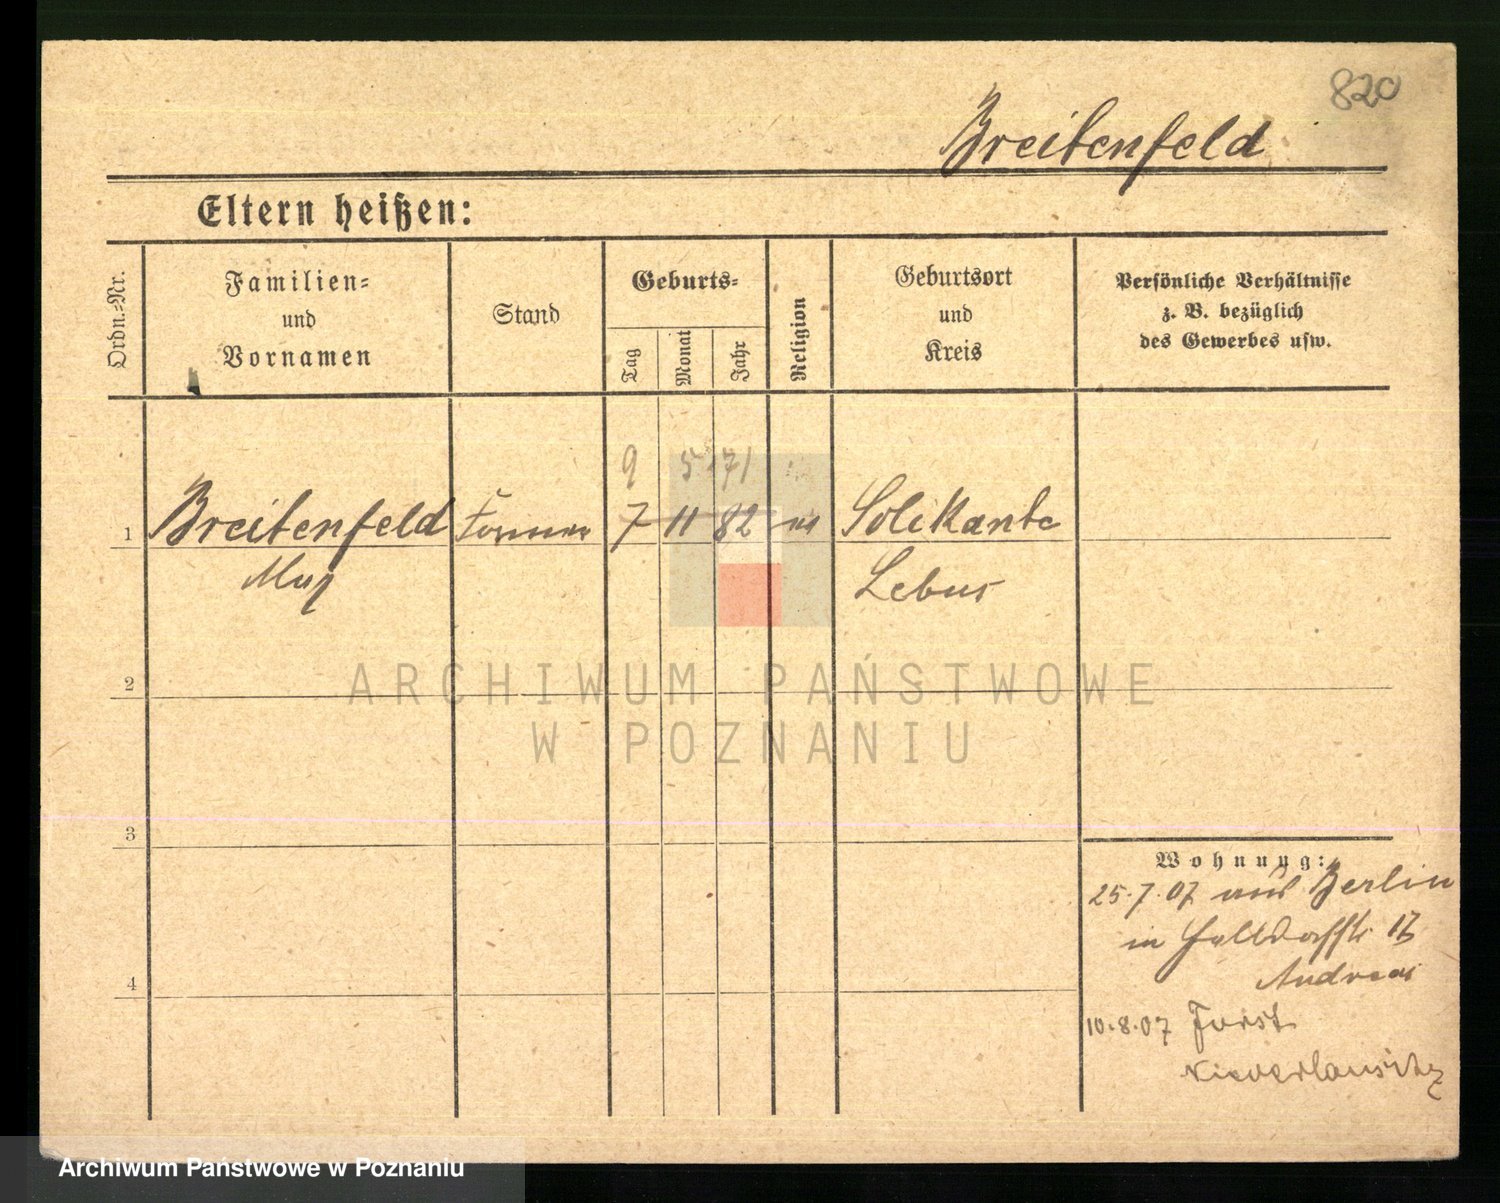 820
Breitenfeld
Eltern heißen:
Ordn.=Nr.
Familien=
und
Vornamen
Stand
Geburts=
Tag
Monat
Jahr
Religion
Geburtsort
und
Kreis
Persönliche Verhältnisse
z. B. bezüglich
des Gewerbes usw.
9 5 71
1 Breitenfeld Former 7 11 82 Solikante
Max
Lebus
2
3
4
Wohnung:
25.7.07 aus Berlin
in 17
Andreas
10.8.07 Forst
Niederlausitz
ARCHIWUM PAŃSTWOWE
W POZNANIU
Archiwum Państwowe w Poznaniu